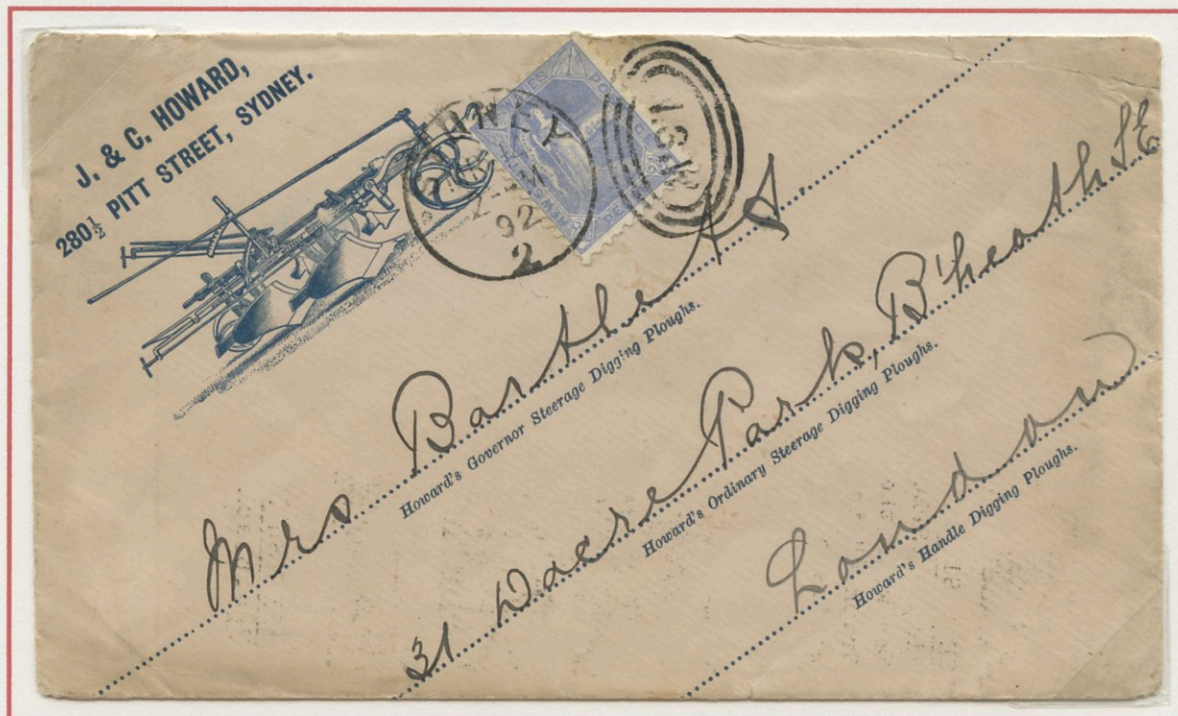 J. & C. HOWARD,
280½ PITT STREET, SYDNEY.
WALES
92
2
N.S.W.
Mrs Barthels
Howard's Governor Steerage Digging Ploughs.
31 Dacre Park, B'heath SE
Howard's Ordinary Steerage Digging Ploughs.
London
Howard's Handle Digging Ploughs.